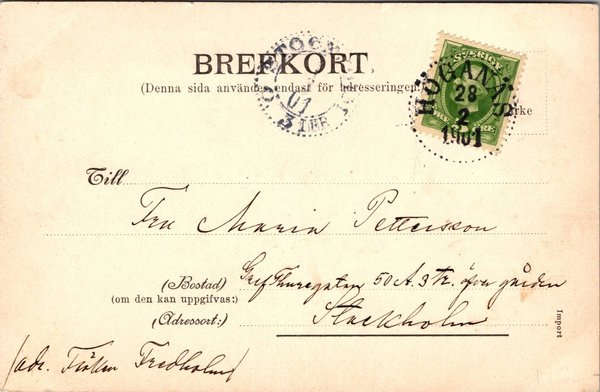 BREFKORT.
(Denna sida användes endast för adresseringen.
SVERIGE
HÖGANÄS
28
2
1901
STOCKHOLM
01
3 TBR
rke
Till
Fru Maria Pettersson
(Bostad)
(om den kan uppgifvas:)
Gref Thuregatan 50 A. 3 tr. öfver gården
(Adressort:)
Stockholm
Import
(adr. Fröken Fredholm)